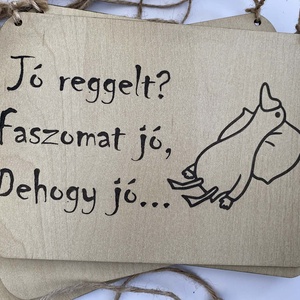 Jó reggelt?
Faszomat jó,
Dehogy jó...